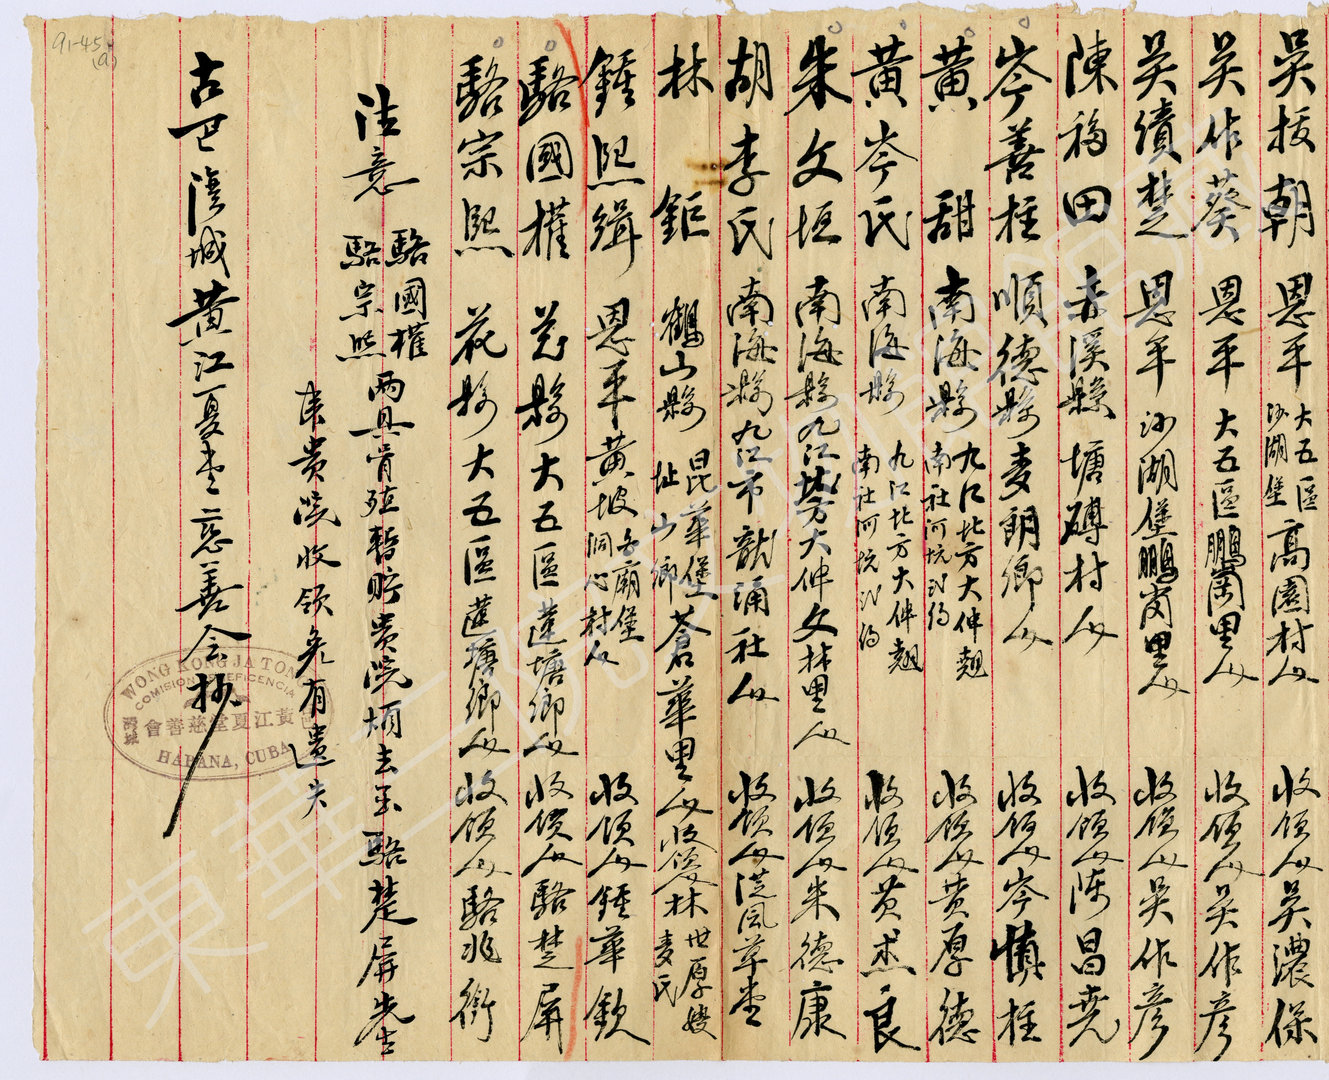 吳拔朝 恩平 大五區 沙湖堡 高園村人 收領人吳濃保
吳作葵 恩平大五區鵬崗里人 收領人吳作彥
吳績楚 恩平沙湖堡鵬崗里人 收領人吳作彥
陳福田 赤溪縣塘磚村人 收領人陳昌堯
岑善柱 順德縣麥朗鄉人 收領人岑慎柱
黃 甜 南海縣 九江北方大伸翹 南社河坑 收領人黃厚德
黃岑氏 南海縣 九江北方大伸翹 南社河坑 收領人黃杰良
朱文垣 南海縣九江 大伸文林里人 收領人朱德康
胡李氏 南海縣九江市龍涌社人 收領人 草堂
林 鉅 鶴山縣 昆華堡 址山鄉 蒼華里人 收領人林 世厚嫂 麥氏
鍾熙緝 恩平黃坡 洞心村人 收領人鍾華欽
駱國權 花縣大五區蓮塘鄉人 收領人駱楚屏
駱宗熙 花縣大五區蓮塘鄉人 收領人駱兆衡
注意 駱國權 駱宗熙 兩具骨殖暫貯貴院煩去函駱楚屏先生
來貴院收領免有遺失
古巴灣城黃江夏堂慈善會抄
WONG KONG JA TONG
COMISION BENEFICENCIA
黃江夏堂慈善會
灣城
HABANA, CUBA
91-45
(a)
東華三院文物館藏